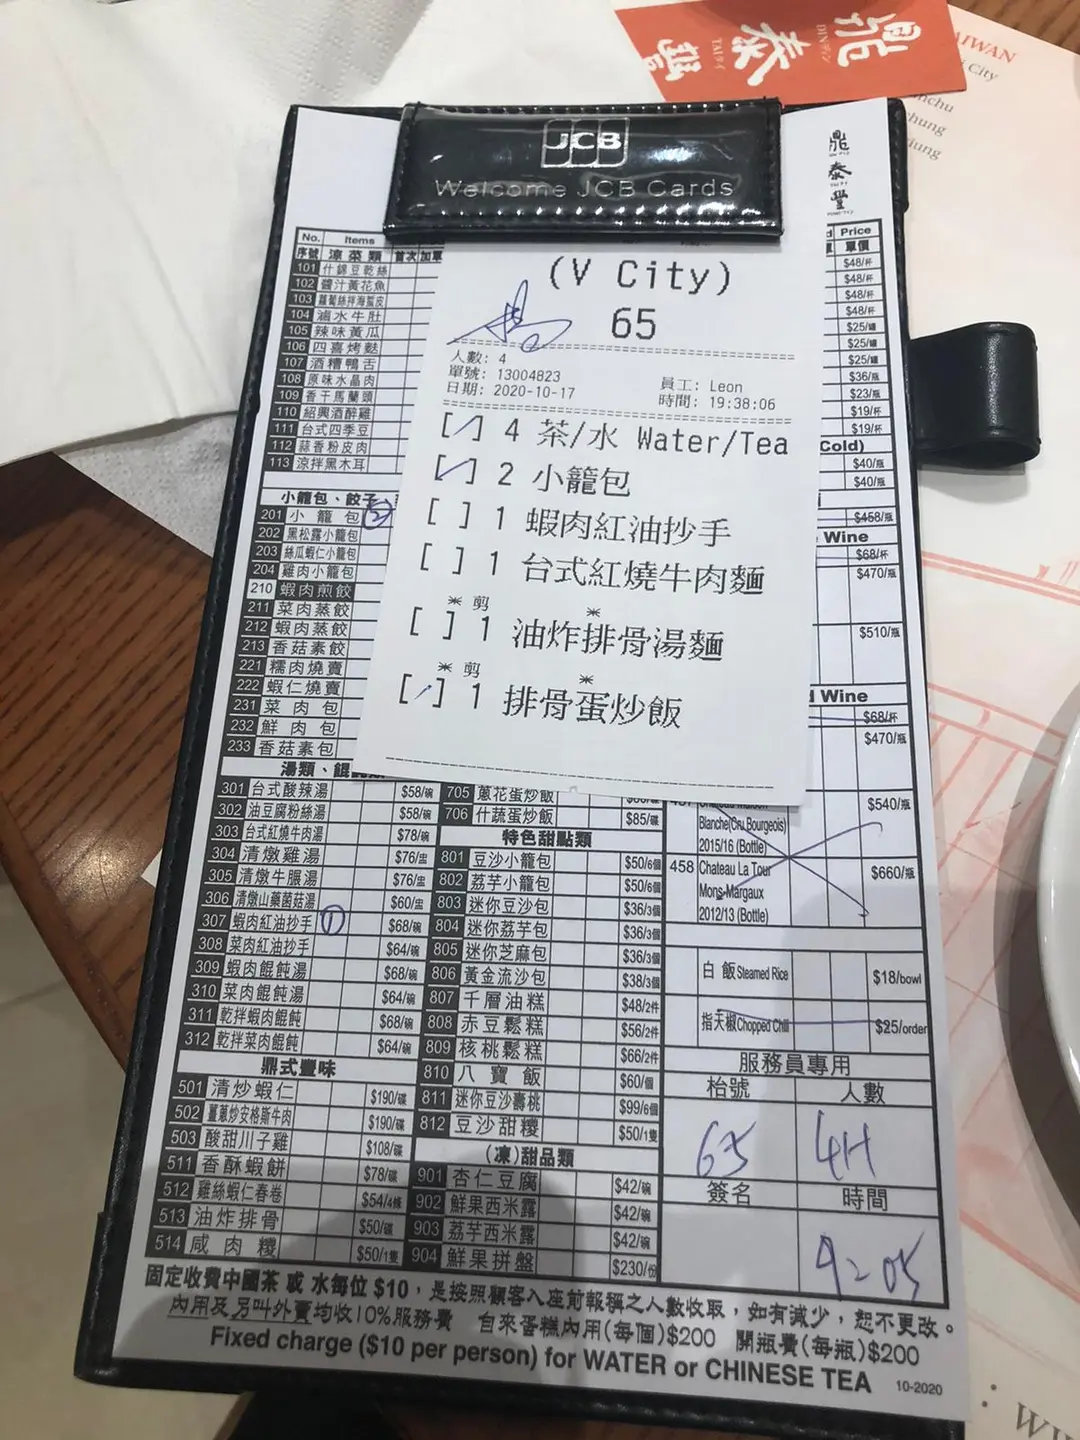 鼎泰豐
DIN
TAI
TAIWAN
City
JCB
Welcome JCB Cards
鼎泰豐
(V City)
65
人數: 4
單號: 13004823
員工: Leon
日期: 2020-10-17
時間: 19:38:06
[ ] 4 茶/水 Water/Tea
[ ] 2 小籠包
[ ] 1 蝦肉紅油抄手
[ ] 1 台式紅燒牛肉麵
※ 剪 ※
[ ] 1 油炸排骨湯麵
※ 剪 ※
[ ] 1 排骨蛋炒飯
No. Items
序號 涼菜類 首次 加單
101 什錦豆乾絲
102 醬汁黃花魚
103 蘿蔔絲拌海蜇皮
104 滷水牛肚
105 辣味黃瓜
106 四喜烤麩
107 酒糟鴨舌
108 原味水晶肉
109 香干馬蘭頭
110 紹興酒醉雞
111 台式四季豆
112 蒜香粉皮肉
113 涼拌黑木耳
小籠包、餃子
201 小籠包 2
202 黑松露小籠包
203 絲瓜蝦仁小籠包
204 雞肉小籠包
210 蝦肉煎餃
211 菜肉蒸餃
212 蝦肉蒸餃
213 香菇素餃
221 糯肉燒賣
222 蝦仁燒賣
231 菜肉包
232 鮮肉包
233 香菇素包
湯類、餛
301 台式酸辣湯 $58/碗
302 油豆腐粉絲湯 $58/碗
303 台式紅燒牛肉湯 $78/碗
304 清燉雞湯 $76/盅
305 清燉牛腒湯 $76/盅
306 清燉山藥菌菇湯 $60/盅
307 蝦肉紅油抄手 1 $68/碗
308 菜肉紅油抄手 $64/碗
309 蝦肉餛飩湯 $68/碗
310 菜肉餛飩湯 $64/碗
311 乾拌蝦肉餛飩 $68/碗
312 乾拌菜肉餛飩 $64/碗
鼎式豐味
501 清炒蝦仁 $190/碟
502 薑蔥炒安格斯牛肉 $190/碟
503 酸甜川子雞 $108/碟
511 香酥蝦餅 $78/碟
512 雞絲蝦仁春卷 $54/4條
513 油炸排骨 $50/碟
514 咸肉糭 $50/1隻
705 蔥花蛋炒飯
706 什蔬蛋炒飯 $85/碟
特色甜點類
801 豆沙小籠包 $50/6個
802 荔芋小籠包 $50/6個
803 迷你豆沙包 $36/3個
804 迷你荔芋包 $36/3個
805 迷你芝麻包 $36/3個
806 黃金流沙包 $38/3個
807 千層油糕 $48/2件
808 赤豆鬆糕 $56/2件
809 核桃鬆糕 $66/2件
810 八寶飯 $60/個
811 迷你豆沙壽桃 $99/6個
812 豆沙甜糭 $50/1隻
(凍)甜品類
901 杏仁豆腐 $42/碗
902 鮮果西米露 $42/碗
903 荔芋西米露 $42/碗
904 鮮果拼盤 $230/份
Price
單價
$48/杯
$48/杯
$48/杯
$48/杯
$25/罐
$25/罐
$25/罐
$36/瓶
$23/瓶
$19/杯
$19/杯
Cold)
$40/瓶
$40/瓶
$458/瓶
Wine
$68/杯
$470/瓶
$510/瓶
Wine
$68/杯
$470/瓶
$540/瓶
Blanche(Cru Bourgeois)
2015/16 (Bottle)
458 Chateau La Tour $660/瓶
Mons-Margaux
2012/13 (Bottle)
白飯 Steamed Rice $18/bowl
指天椒 Chopped Chili $25/order
服務員專用
枱號 人數
65 4H
簽名 時間
9-05
固定收費中國茶 或 水每位 $10，是按照顧客入座前報稱之人數收取，如有減少，恕不更改。
內用及另叫外賣均收10%服務費 自來蛋糕內用(每個)$200 開瓶費(每瓶)$200
Fixed charge ($10 per person) for WATER or CHINESE TEA
10-2020